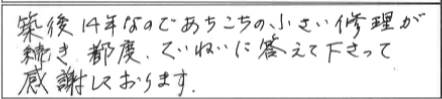 築後14年なのであちこちの小さい修理が
続き、都度、ていねいに答えて下さって
感謝しております。